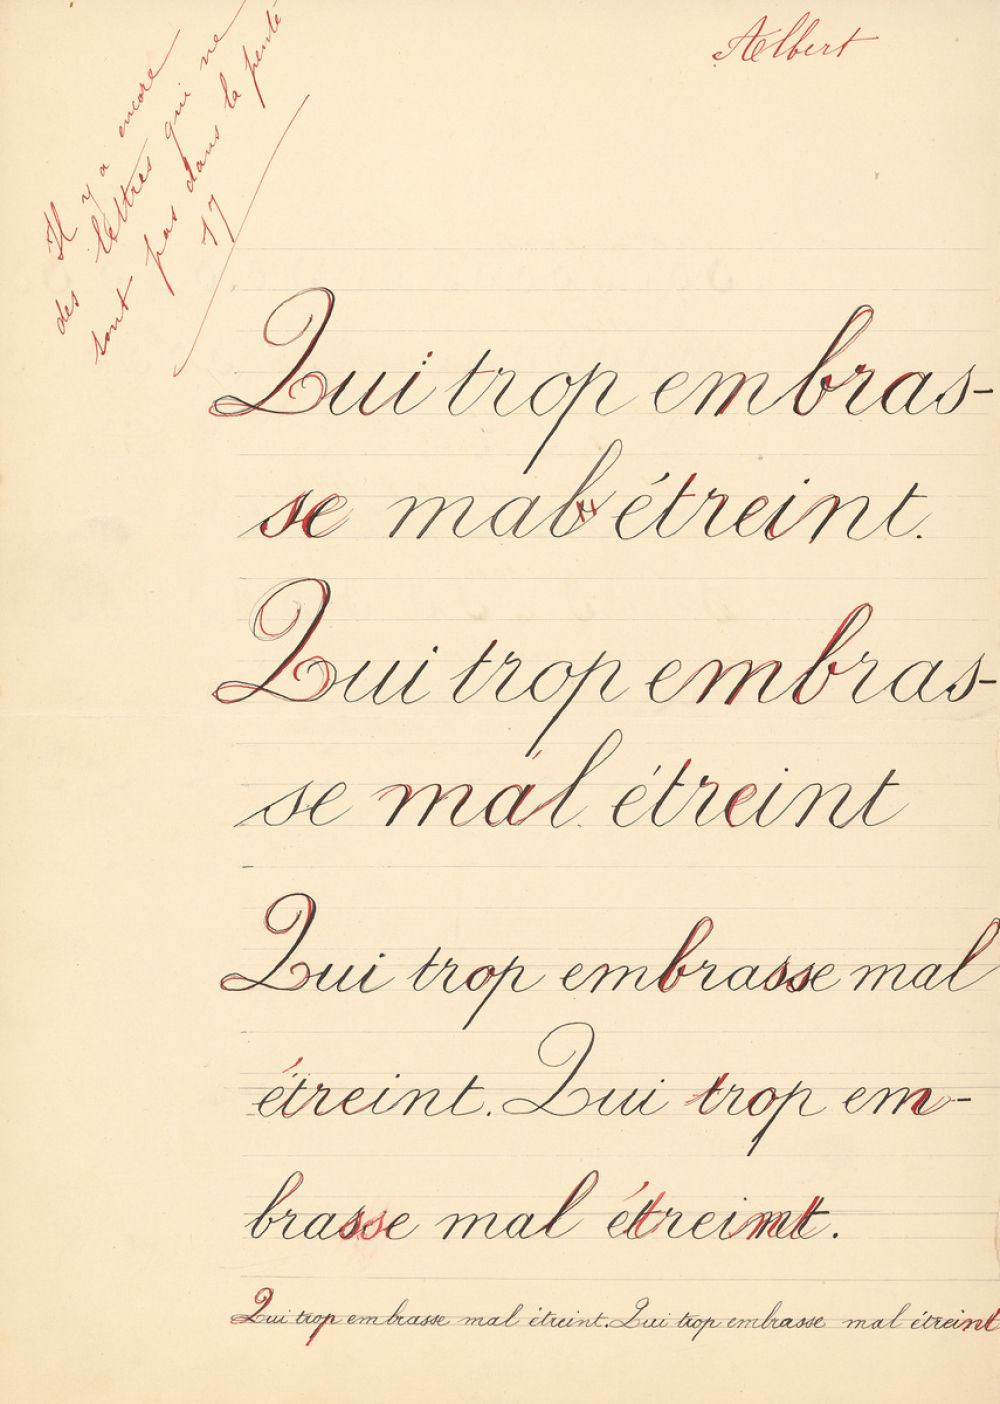 Albert
Il y a encore
des lettres qui ne
sont pas dans la pente
17
Qui trop embras-
se mal étreint.
Qui trop embras-
se mal étreint
Qui trop embrasse mal
étreint. Qui trop em-
brasse mal étreint.
Qui trop embrasse mal étreint. Qui trop embrasse mal étreint